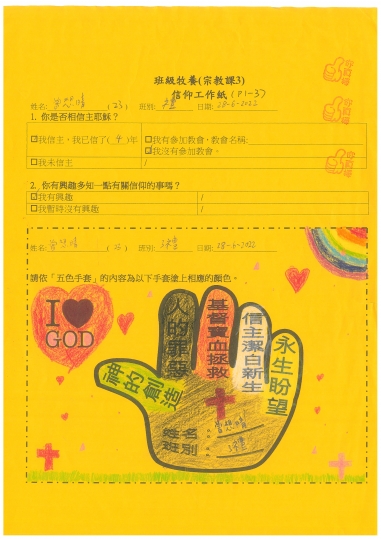 班級牧養(宗教課3)
信仰工作紙(P1-3)
姓名: (23) 班別: 日期: 28-6-2022
1. 你是否相信主耶穌?
☑我信主，我已信了( )年
□我有參加教會，教會名稱:
☑我沒有參加教會。
□我未信主 /
2. 你有興趣多知一點有關信仰的事嗎?
☑我有興趣 /
□我暫時沒有興趣 /
姓名: 班別: 日期: 28-6-2022
請依「五色手套」的內容為以下手套塗上相應的顏色。
I ♥
GOD
神的創造
人的罪惡
基督寶血拯救
信主潔白新生
永生盼望
姓名
班別